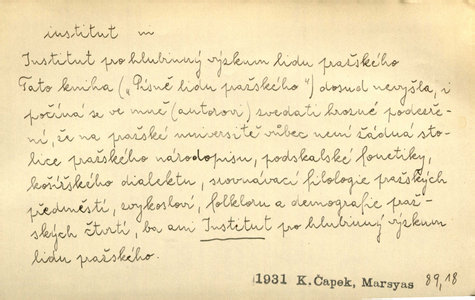 institut m
Institut pro hlubinný výzkum lidu pražského
Tato kniha („Písně lidu pražského“) dosud nevyšla, i
počíná se ve mně (autorovi) zvedati hrozné podezře-
ní, že na pražské universitě vůbec není žádná sto-
lice pražského národopisu, podskalské fonetiky,
košířského dialektu, srovnávací filologie pražských
předměstí, zvykosloví, folkloru a demografie praž-
ských čtvrtí, ba ani Institut pro hlubinný výzkum
lidu pražského.
1931 K. Čapek, Marsyas 89,18